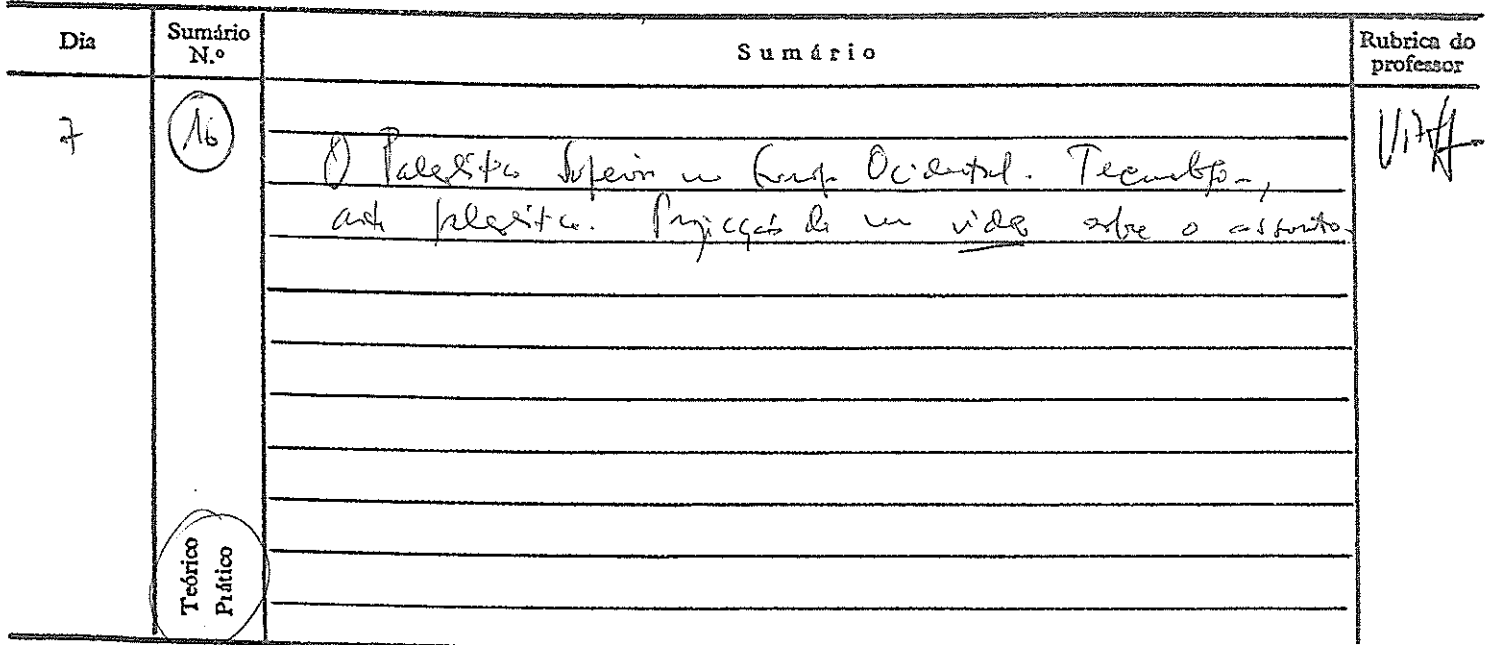 Dia
Sumário N.º
Sumário
Rubrica do professor
7
16
O Paleolítico Superior na Europa Ocidental. Tecnologia,
arte paleolítica. Projecção de um vídeo sobre o assunto.
Teórico
Prático